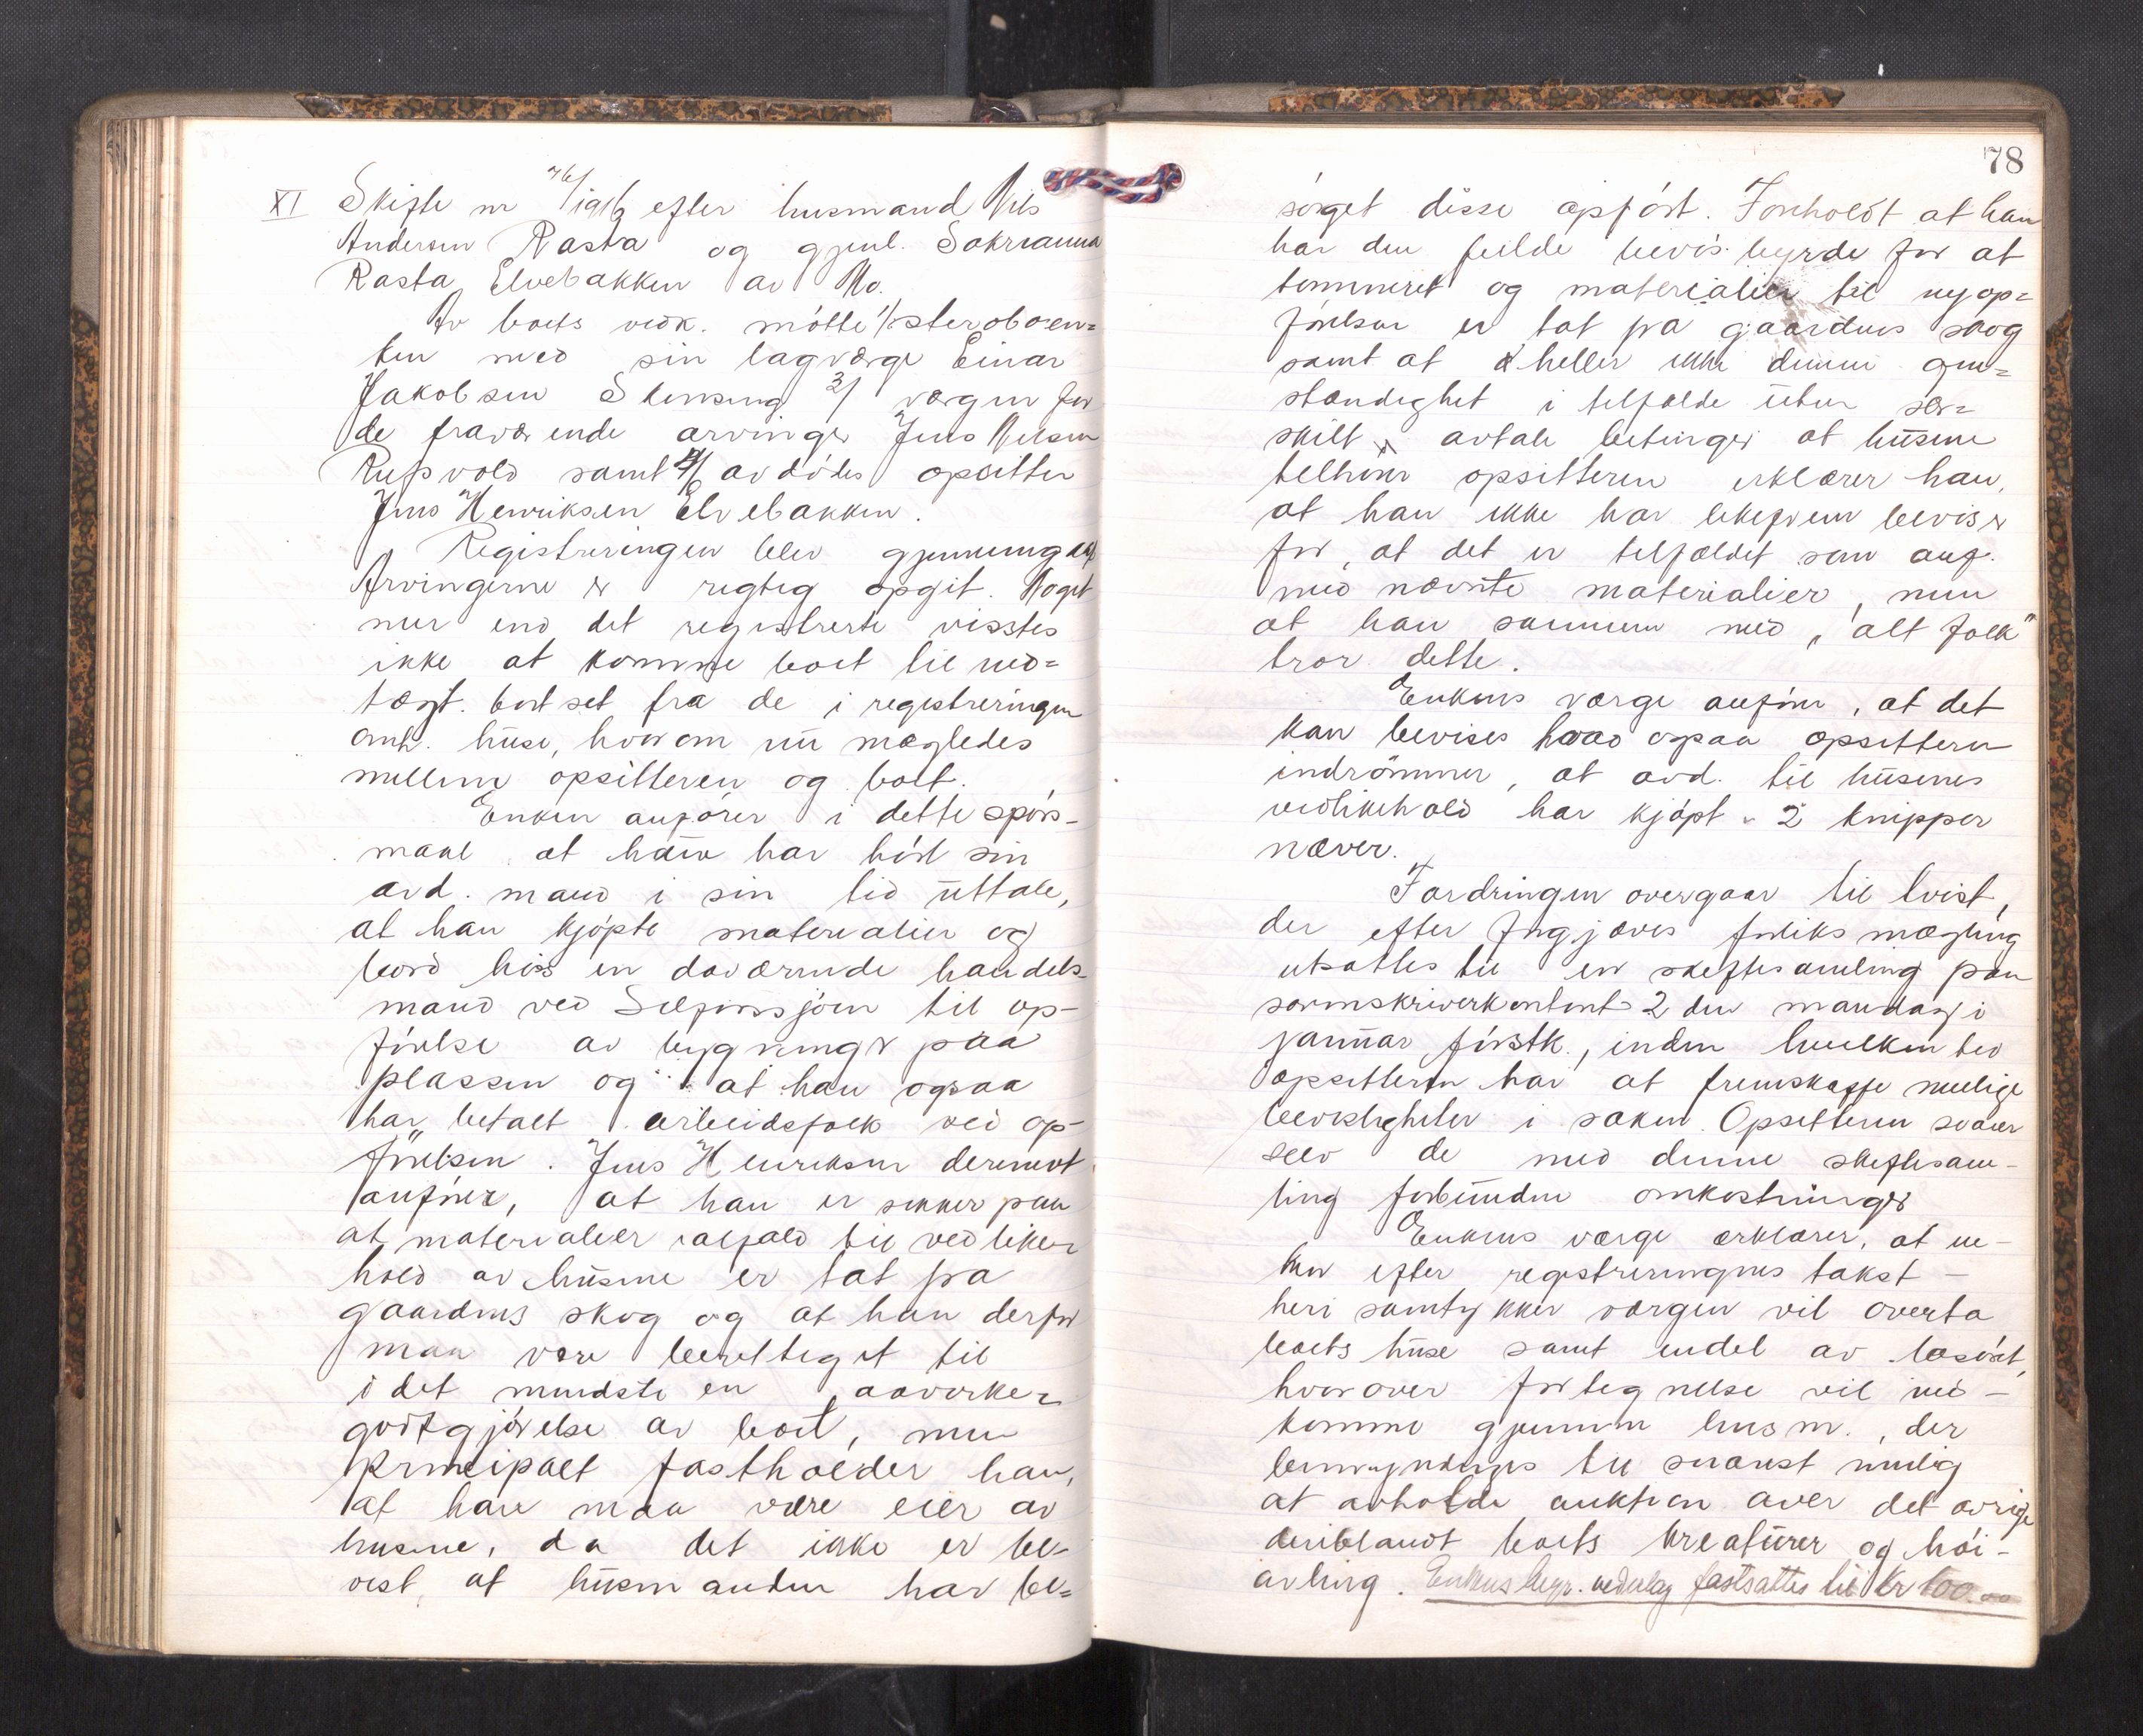 XI Skifte nr 76/1916 efter husmand Nils
Andersen Rasta og gjenl. Sakrianna
Rasta Elvebakken av Mo.
Av boets vedk. mötte 1/ sterboen=
ken med sin lagværge Einar
Jakobsen Stensing 3/ værgen for
de fraværende arvinger Jens Nilsen
Rufsvold samt 4/ avdödes opsitter
Jens Henriksen Elvebakken.
Registreringen blev gjennemgaat
Arvingerne er regtig opgit. Noget
mer end det registrerte visstes
ikke at komme boet til ind=
tægt. bortset fra de i registreringen
omh. huse, hvorom nu mægledes
mellem opsitteren og boet.
Enken anförer i dette spörs-
maal at hun har hört sin
avd. mand i sin tid uttale,
at han kjöpte materialier og
bord hos en daværende handels-
mand ved Selforssjöen til op-
förelse av bygninger paa
plassen og at han ogsaa
har betalt arbeidsfolk ved op-
förelsen. Jens Henriksen derimot
anförer, at han er sikker paa
at materialier ialfald til vedlike=
hold av husene er tat pa
gaardens skog og at han derfor
maa være berettiget til
i det mindste en aavirke=
godtgjörelse av boet, men
principalt fastholder han,
at han maa være eier av
husene, da det ikke er be-
vist, at husmanden har be=
78
sörget disse opfört. Foreholdt at han
har den fulde bevisbyrde for at
tömmeret og materialier til nyop=
förelsen er tat pa gaardens skog
samt at heller ikke denne om=
stændighet i tilfælde uten sær=
skilt avtale betinger at husene
tilhörer opsitteren erklærer han,
at han ikke har likefrem beviser
for, at det er tilfældet som anf.
med nævnte materialier, men
at han sammen med "alt folk"
tror dette.
Enkens værge anförer, at det
kan bevises hvad ogsaa opsitteren
indrömmer, at avd. til husenes
vedlikehold har kjöpt 2 knipper
næver.
Fordringen overgaar til tvist,
der efter forgjæves forliksmægling
utsattes til en skiftesamling paa
sorenskriverkontoret 2den mandag i
januar förstk., inden hvilken tid
opsitteren har at fremskaffe mulige
bevisligheter i saken. Opsitteren svarer
selv de med denne skiftesam-
ling forbundne omkostninger
Enkens værge erklærer, at en-
ken efter registreringens takst -
heri samtykker værgen vil overta
boets huse samt endel av lösöret,
hvorover fortegnelse vil ind-
komme gjennem lensm., der
bemyndiges til snarest mulig
at avholde auktion over det övrige
deriblandt boets kreaturer og höi-
avling. Enkens begr. vederlag fastsattes til kr 100.00